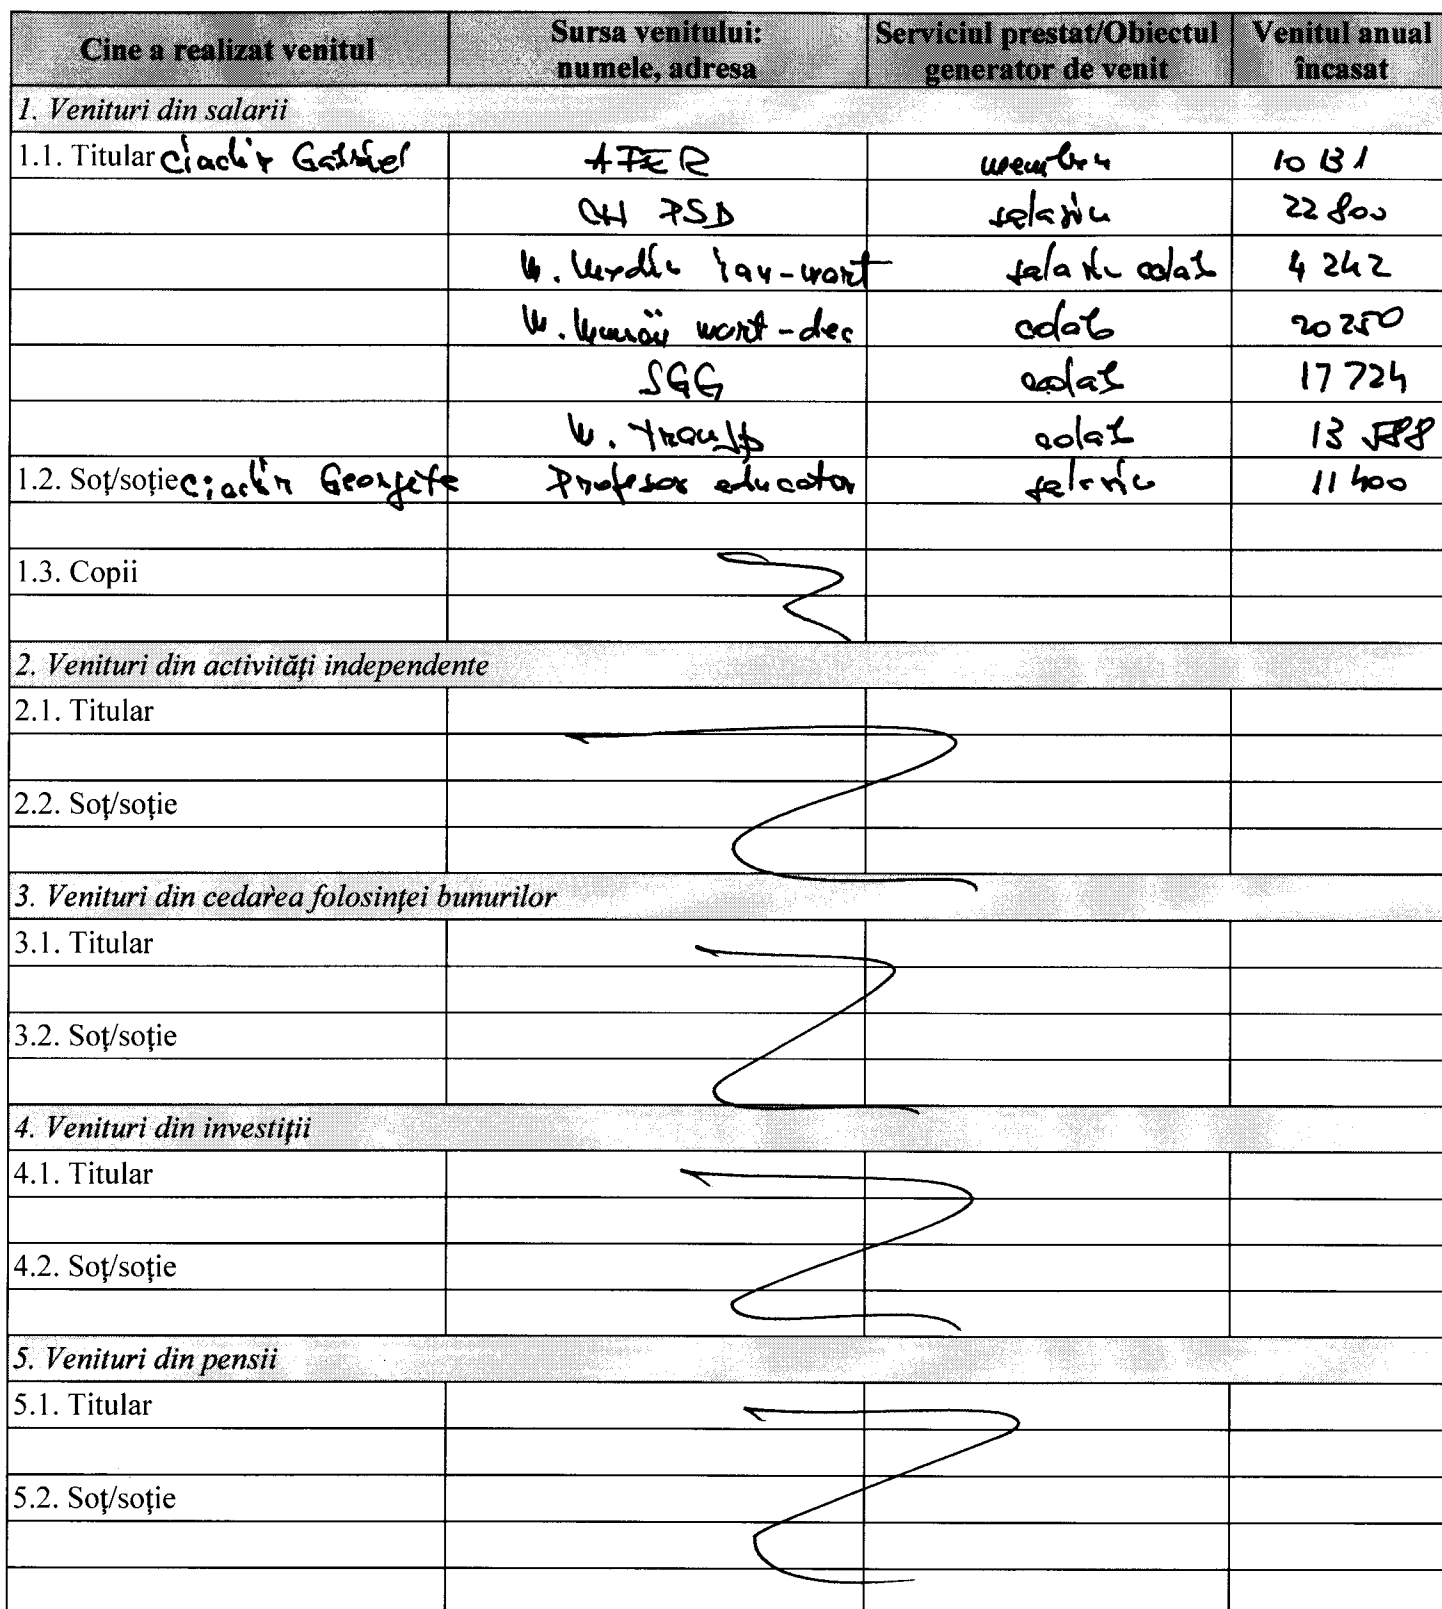 Cine a realizat venitul Sursa venitului: numele, adresa Serviciul prestat/Obiectul generator de venit Venitul anual încasat
1. Venituri din salarii
1.1. Titular Ciacîr Gabriel AFER membru 10 131
CH PSD salariu 22 800
M. Mediu ian-mart salariu colab 4 242
M. mart-dec colab 20 250
SGG colab 17 724
M. Transp colab 13 588
1.2. Soț/soție Georgeta Profesor educator salariu 11 400
1.3. Copii
2. Venituri din activităţi independente
2.1. Titular
2.2. Soţ/soţie
3. Venituri din cedarea folosinţei bunurilor
3.1. Titular
3.2. Soţ/soţie
4. Venituri din investiţii
4.1. Titular
4.2. Soţ/soţie
5. Venituri din pensii
5.1. Titular
5.2. Soţ/soţie